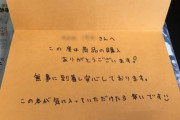 さんへ
この度は商品の購入
ありがとうございます!
無事に到着し安心しております。
この本が気に入っていただけたら幸いです